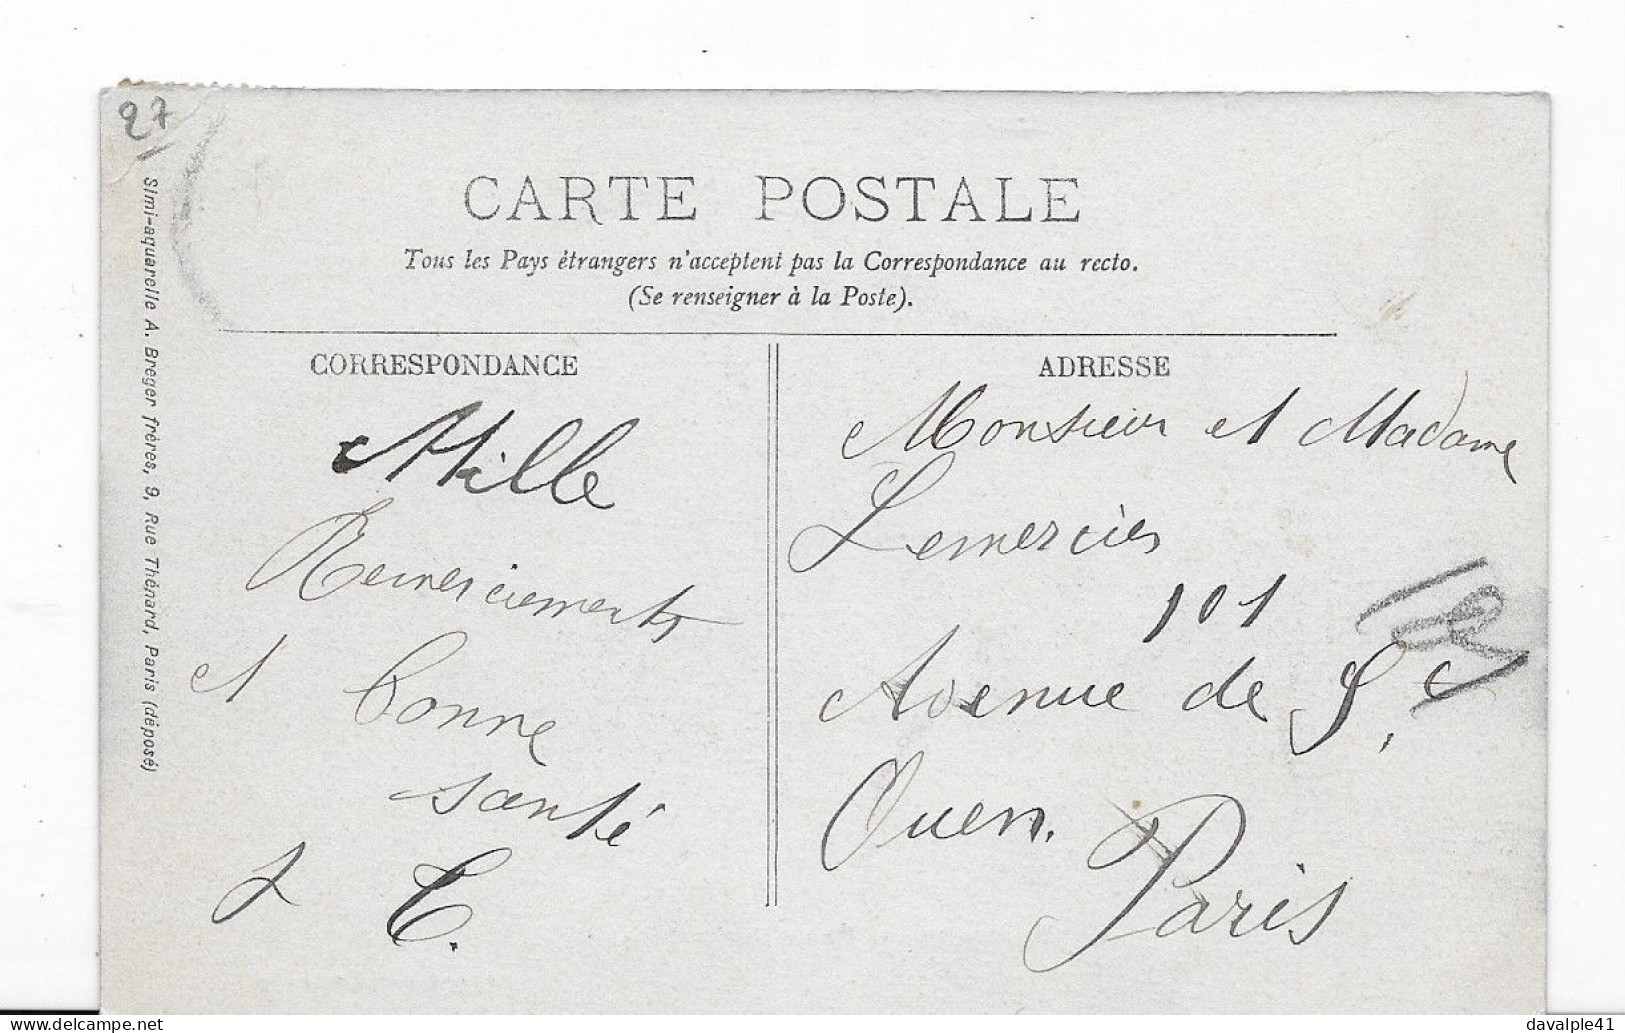 27
CARTE POSTALE
Tous les Pays étrangers n'acceptent pas la Correspondance au recto.
(Se renseigner à la Poste).
CORRESPONDANCE
Mille
Remerciements
et bonne
santé
C.
ADRESSE
Monsieur et Madame
Lemercier
101
Avenue de St
Ouen.
Paris
Simi-aquarelle A. Breger frères, 9, Rue Thénard, Paris (déposé)
davalple41